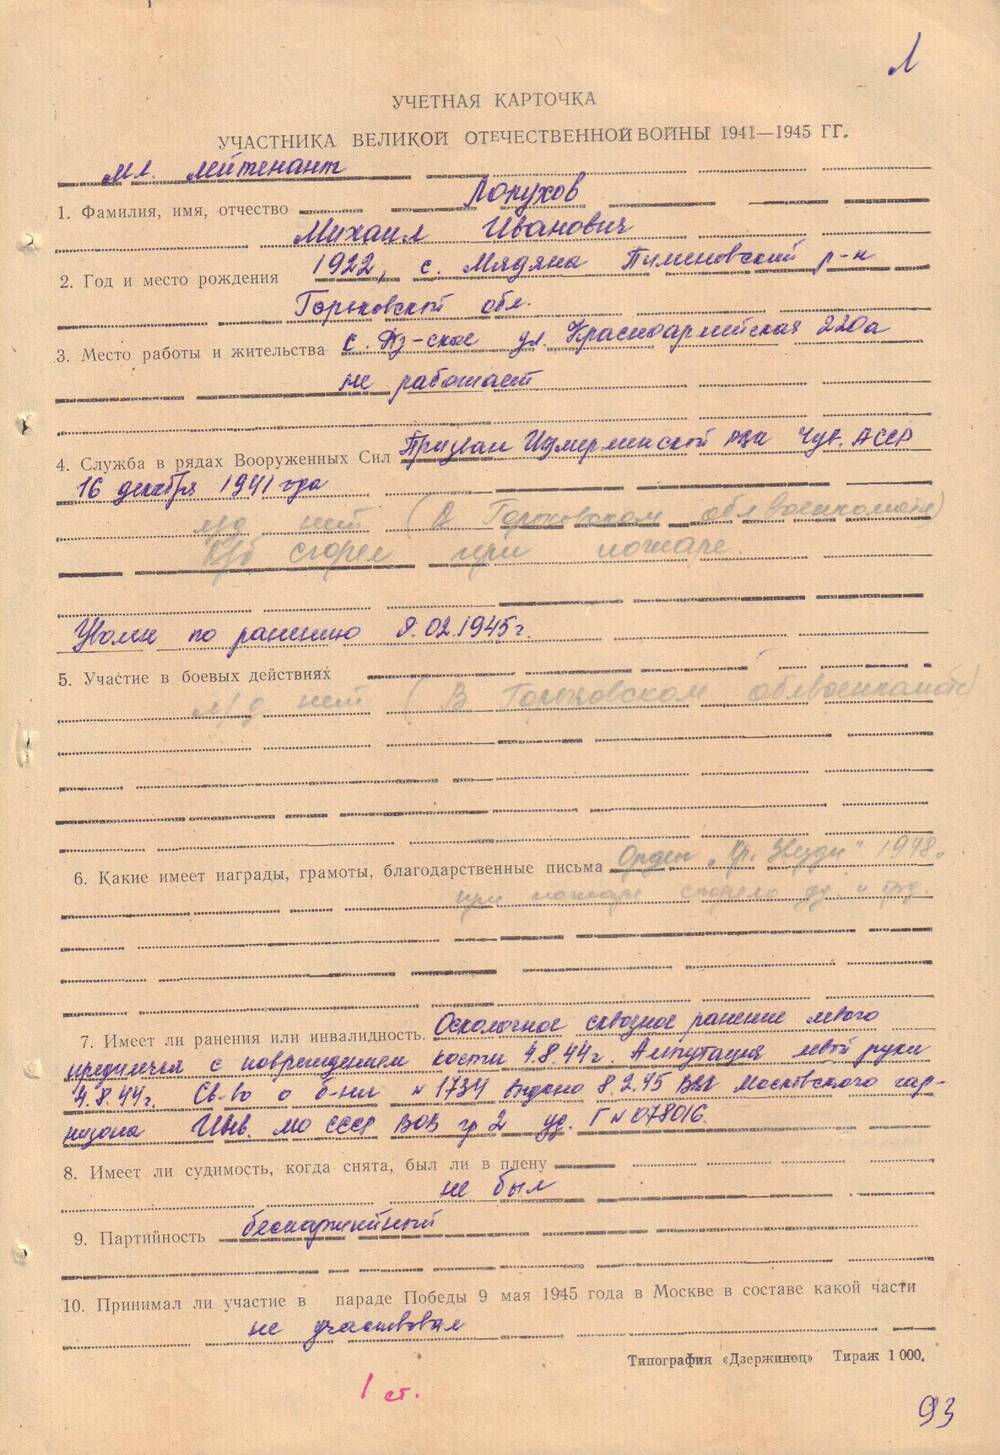 Л
УЧЕТНАЯ КАРТОЧКА
УЧАСТНИКА ВЕЛИКОЙ ОТЕЧЕСТВЕННОЙ ВОЙНЫ 1941—1945 ГГ.
мл. лейтенант
1. Фамилия, имя, отчество Лопухов
Михаил Иванович
2. Год и место рождения 1922, с. Мядяна Пильновский р-н
Горьковской обл.
3. Место работы и жительства с. Дз-ское ул. Красноармейская 220а
не работает
4. Служба в рядах Вооруженных Сил Призван Ишмерлинской РВК Чув. АССР
16 декабря 1941 года
м/д нет (В Горьковском облвоенкомате)
В/б сгорел при пожаре.
Уволен по ранению 8.02.1945г.
5. Участие в боевых действиях
м/д нет (В Горьковском облвоенкомате)
6. Какие имеет награды, грамоты, благодарственные письма Орден „Кр. Звезды" 1948
при пожаре сгорело уд. и
7. Имеет ли ранения или инвалидность. Осколочное сквозное ранение левого
предплечья с повреждением кости 4.8.44г. Ампутация левой руки
4.8.44г. Св-во о б-ни №1734 выдано 8.2.45 ВВК Московского гар-
низона Инв. МО СССР ВОВ гр 2 уд. Г №078016.
8. Имеет ли судимость, когда снята, был ли в плену
не был
9. Партийность беспартийный
10. Принимал ли участие в параде Победы 9 мая 1945 года в Москве в составе какой части
не участвовал
Типография «Дзержинец» Тираж 1 000.
1 ст.
93